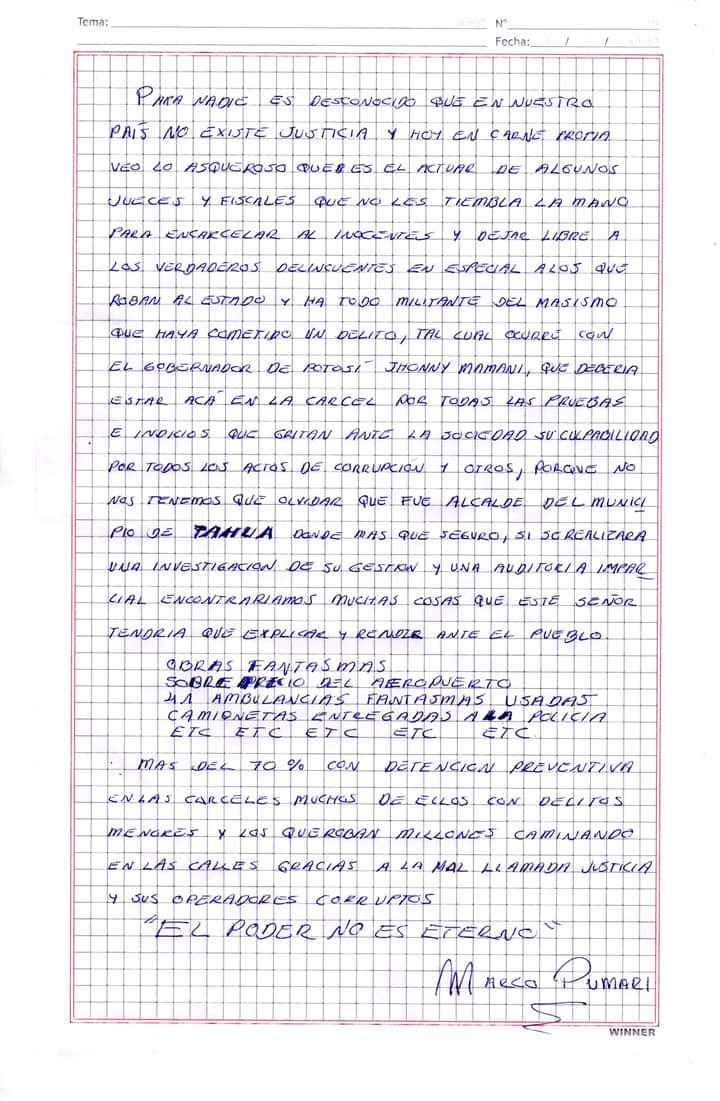 Tema:
N°
Fecha: / /
PARA NADIE ES DESCONOCIDO QUE EN NUESTRO
PAÍS NO EXISTE JUSTICIA Y HOY EN CARNE PROPIA
VEO LO ASQUEROSO QUE ES EL ACTUAR DE ALGUNOS
JUECES Y FISCALES QUE NO LES TIEMBLA LA MANO
PARA ENCARCELAR AL INOCENTES Y DEJAR LIBRE A
LOS VERDADEROS DELINCUENTES EN ESPECIAL A LOS QUE
ROBAN AL ESTADO Y HA TODO MILITANTE DEL MASISMO
QUE HAYA COMETIDO UN DELITO, TAL CUAL OCURRE CON
EL GOBERNADOR DE POTOSÍ JHONNY MAMANI, QUE DEBERIA
ESTAR ACÁ EN LA CARCEL POR TODAS LAS PRUEBAS
E INDICIOS QUE GRITAN ANTE LA SOCIEDAD SU CULPABILIDAD
POR TODOS LOS ACTOS DE CORRUPCIÓN Y OTROS, PORQUE NO
NOS TENEMOS QUE OLVIDAR QUE FUE ALCALDE DEL MUNICI
PIO DE TAHUA DONDE MAS QUE SEGURO, SI SE REALIZARA
UNA INVESTIGACION DE SU GESTION Y UNA AUDITORIA IMPAR
CIAL ENCONTRARIAMOS MUCHAS COSAS QUE ESTE SEÑOR
TENDRIA QUE EXPLICAR Y RENDIR ANTE EL PUEBLO.
OBRAS FANTASMAS
SOBRE PRECIO DEL AEROPUERTO
41 AMBULANCIAS FANTASMAS USADAS
CAMIONETAS ENTREGADAS A LA POLICIA
ETC ETC ETC ETC ETC.
MAS DEL 70% CON DETENCION PREVENTIVA
EN LAS CARCELES MUCHOS DE ELLOS CON DELITOS
MENORES Y LOS QUE ROBAN MILLONES CAMINANDO
EN LAS CALLES GRACIAS A LA MAL LLAMADA JUSTICIA
Y SUS OPERADORES CORRUPTOS
"EL PODER NO ES ETERNO"
MARCO PUMARI
WINNER